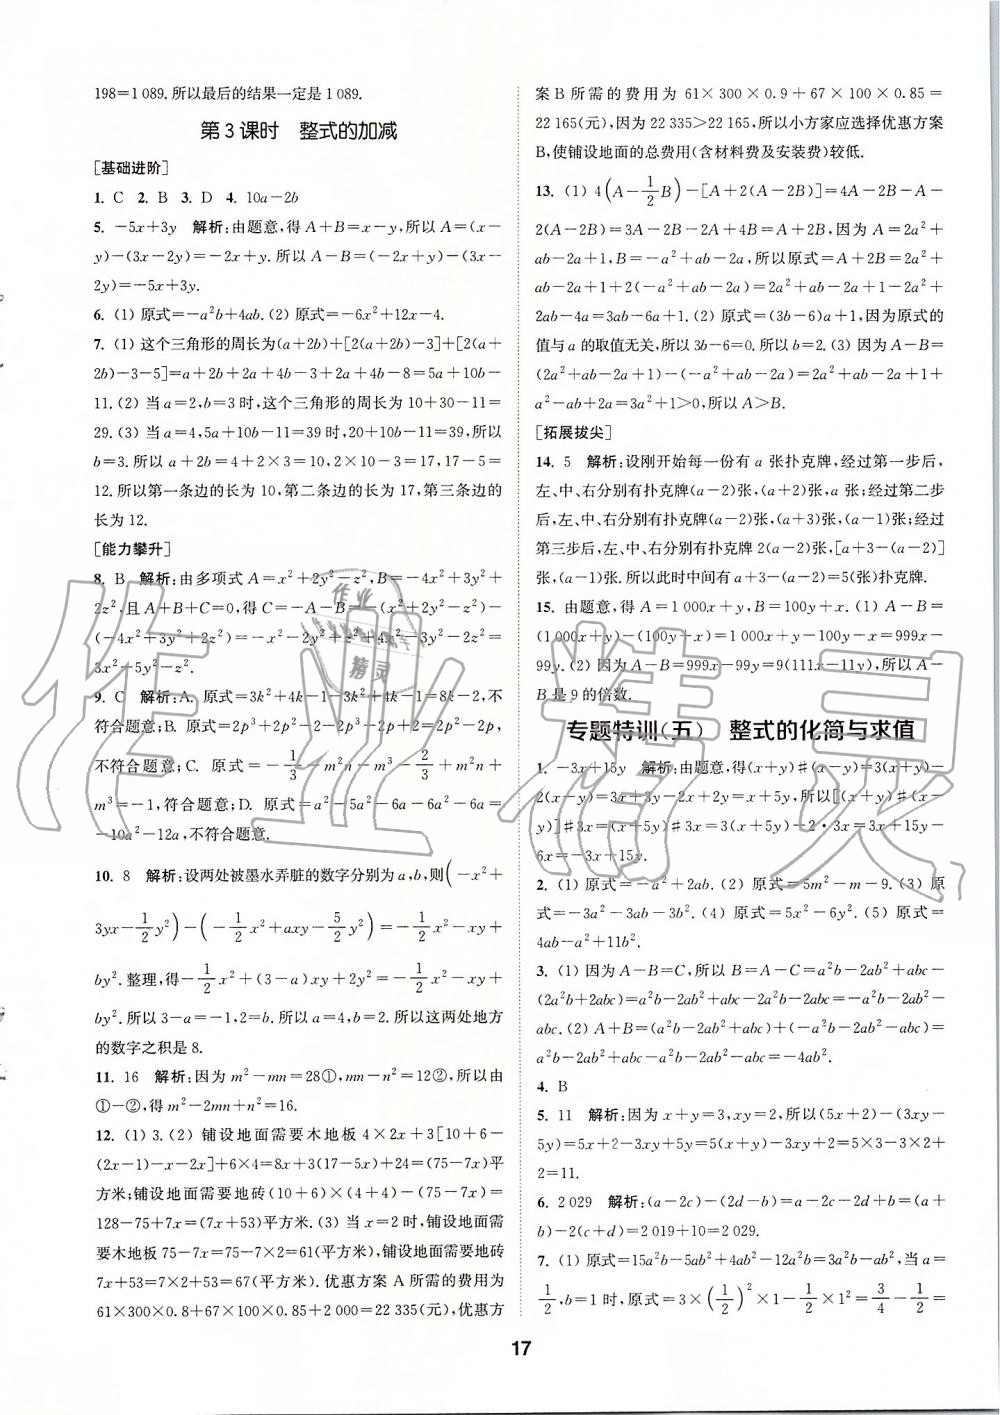 198=1 089.所以最后的结果一定是1 089.
第3课时 整式的加减
[基础进阶]
1. C 2. B 3. D 4. 10a-2b
5. -5x+3y 解析:由题意,得A+B=x-y,所以A=(x-
y)-(3x-2y)=-2x+y.所以A-B=(-2x+y)-(3x-
2y)=-5x+3y.
6. (1) 原式=-a²b+4ab.(2) 原式=-6x²+12x-4.
7. (1) 这个三角形的周长为(a+2b)+[2(a+2b)-3]+[2(a+
2b)-3-5]=a+2b+2a+4b-3+2a+4b-8=5a+10b-
11.(2) 当a=2,b=3时,这个三角形的周长为10+30-11=
29.(3) 当a=4,5a+10b-11=39时,20+10b-11=39,所以
b=3.所以a+2b=4+2×3=10,2×10-3=17,17-5=
12.所以第一条边的长为10,第二条边的长为17,第三条边的
长为12.
[能力攀升]
8. B 解析:由多项式A=x²+2y²-z²,B=-4x²+3y²+
2z²,且A+B+C=0,得C=-A-B=-(x²+2y²-z²)-
(-4x²+3y²+2z²)=-x²-2y²+z²+4x²-3y²-2z²=
3x²-5y²-z².
9. C 解析:A. 原式=3k²+4k-1-3k²+4k-1=8k-2,不
符合题意;B. 原式=2p³+2p²-2-2p³-2p+2=2p²-2p,
不符合题意;C. 原式=-1/3-m²n-m³-2/3+m²n+
m³=-1,符合题意;D. 原式=a²-5a²-6a-6a²-6a=
-10a²-12a,不符合题意.
10. 8 解析:设两处被墨水弄脏的数字分别为a,b,则(-x²+
3yx-1/2y²)-(-1/2x²+axy-5/2y²)=-1/2x²-xy+
by².整理,得-1/2x²+(3-a)xy+2y²=-1/2x²-xy+
by².所以3-a=-1,2=b.所以a=4,b=2.所以这两处地方
的数字之积是8.
11. 16 解析:因为m²-mn=28①,mn-n²=12②,所以由
①-②,得m²-2mn+n²=16.
12. (1) 3.(2) 铺设地面需要木地板4×2x+3[10+6-
(2x-1)-x-2x]+6×4=8x+3(17-5x)+24=(75-7x)平
方米;铺设地面需要地砖(10+6)×(4+4)-(75-7x)=
128-75+7x=(7x+53)平方米.(3) 当x=2时,铺设地面需
要木地板75-7x=75-7×2=61(平方米),铺设地面需要地砖
7x+53=7×2+53=67(平方米).优惠方案A所需的费用为
61×300×0.8+67×100×0.85+2 000=22 335(元),优惠方
案B所需的费用为61×300×0.9+67×100×0.85=
22 165(元),因为22 335>22 165,所以小方家应选择优惠方案
B,使铺设地面的总费用(含材料费及安装费)较低.
13. (1) 4(A-1/2B)-[A+2(A-2B)]=4A-2B-A-
2(A-2B)=3A-2B-2A+4B=A+2B,因为A=2a²+
ab-2a+1,B=-a²+ab-2a,所以原式=A+2B=2a²+
ab-2a+1+2(-a²+ab-2a)=2a²+ab-2a+1-2a²+
2ab-4a=3ab-6a+1.(2) 原式=(3b-6)a+1,因为原式的
值与a的取值无关,所以3b-6=0.所以b=2.(3) 因为A-B=
(2a²+ab-2a+1)-(-a²+ab-2a)=2a²+ab-2a+1+
a²-ab+2a=3a²+1>0,所以A>B.
[拓展拔尖]
14. 5 解析:设刚开始每一份有a张扑克牌,经过第一步后,
左、中、右分别有扑克牌(a-2)张,(a+2)张,a张;经过第二步
后,左、中、右分别有扑克牌(a-2)张,(a+3)张,(a-1)张;经过
第三步后,左、中、右分别有扑克牌2(a-2)张,[a+3-(a-2)]
张,(a-1)张.所以此时中间有a+3-(a-2)=5(张)扑克牌.
15. 由题意,得A=1 000x+y,B=100y+x.(1) A-B=
(1 000x+y)-(100y+x)=1 000x+y-100y-x=999x-
99y.(2) 因为A-B=999x-99y=9(111x-11y),所以A-
B是9的倍数.
专题特训(五) 整式的化简与求值
1. -3x+15y 解析:由题意,得(x+y)#(x-y)=3(x+y)-
2(x-y)=3x+3y-2x+2y=x+5y,所以[(x+y)#(x-
y)]#3x=(x+5y)#3x=3(x+5y)-2·3x=3x+15y-
6x=-3x+15y.
2. (1) 原式=-a²+2ab.(2) 原式=5m²-m-9.(3) 原
式=-3a²-3ab-3b².(4) 原式=5x²-6y².(5) 原式=
4ab-a²+11b².
3. (1) 因为A-B=C,所以B=A-C=a²b-2ab²+abc-
(2a²b+2abc)=a²b-2ab²+abc-2a²b-2abc=-a²b-2ab²-
abc.(2) A+B=(a²b-2ab²+abc)+(-a²b-2ab²-abc)=
a²b-2ab²+abc-a²b-2ab²-abc=-4ab².
4. B
5. 11 解析:因为x+y=3,xy=2,所以(5x+2)-(3xy-
5y)=5x+2-3xy+5y=5(x+y)-3xy+2=5×3-3×2+
2=11.
6. 2 029 解析:(a-2c)-(2d-b)=a-2c-2d+b=(a+
b)-2(c+d)=2 019+10=2 029.
7. (1) 原式=15a²b-5ab²+4ab²-12a²b=3a²b-ab²,当a=
1/2,b=1时,原式=3×(1/2)²×1-1/2×1²=3/4-1/2=
17
作业精灵